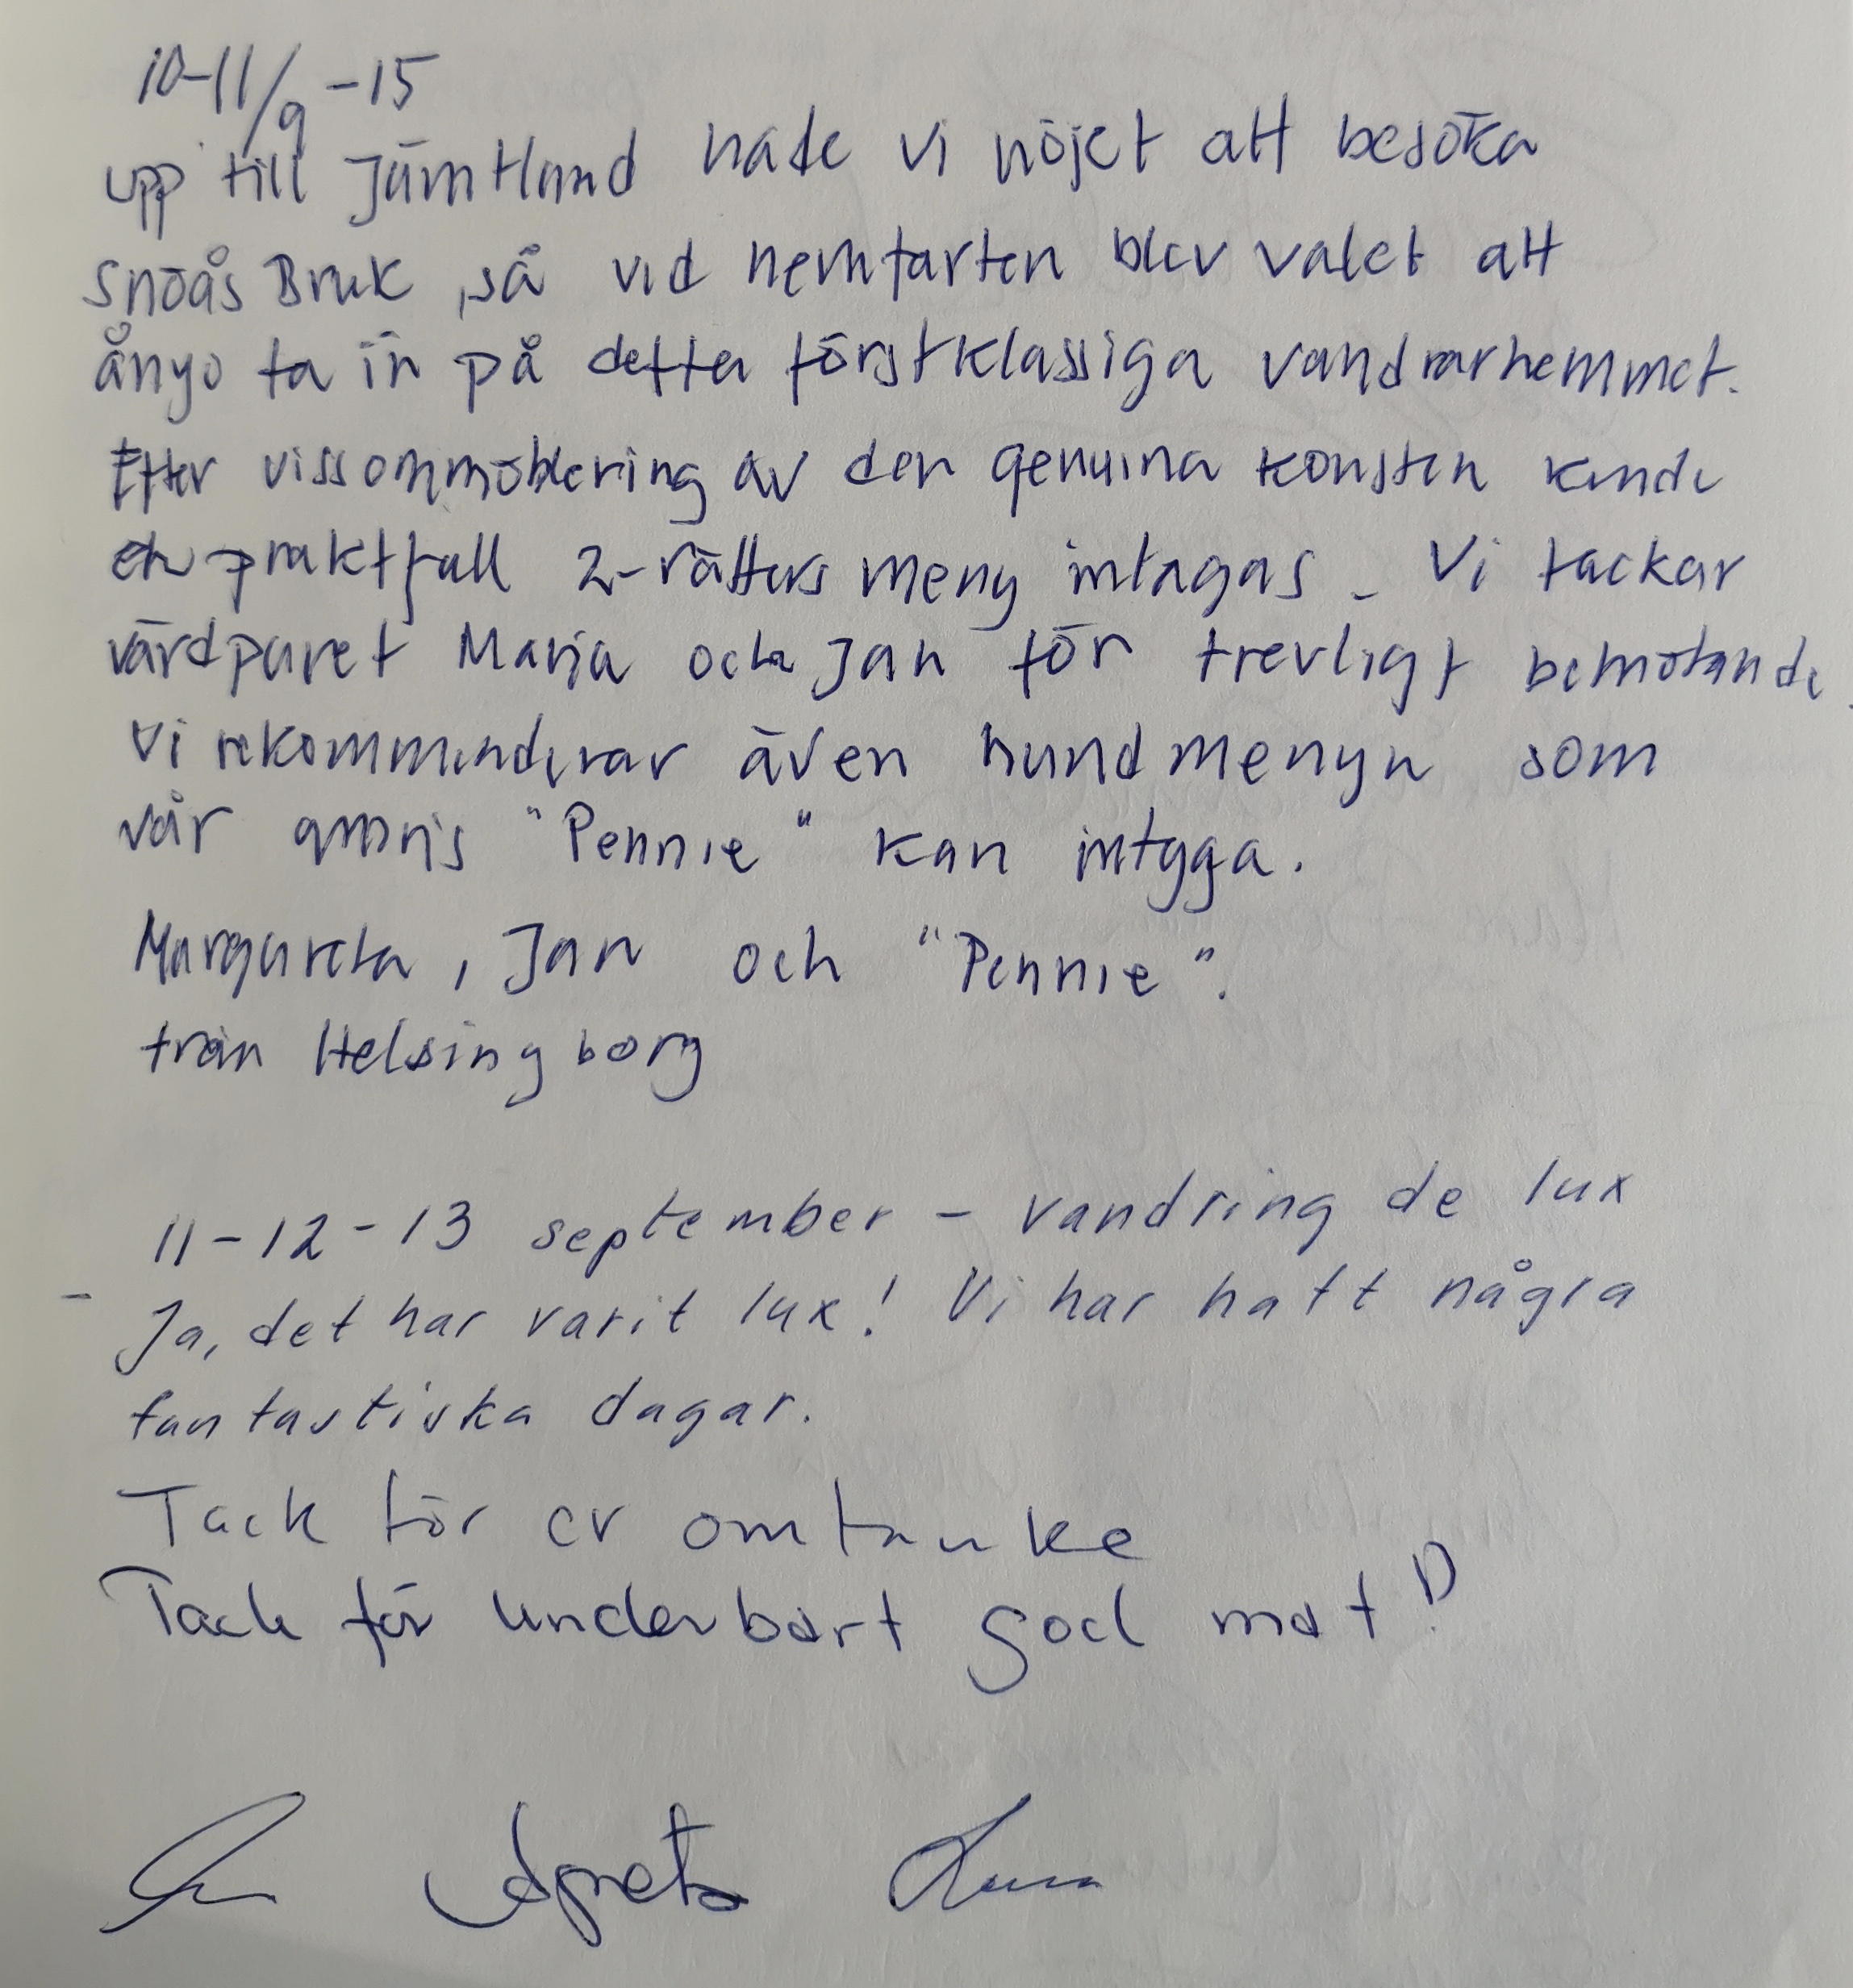 10-11/9 -15
upp till Jämtland hade vi nöjet att besöka
Snöås Bruk, så vid hemfarten blev valet att
ånyo ta in på detta förstklassiga vandrarhemmet.
Efter viss ommöblering av den genuina konsten kunde
en praktfull 2-rätters meny intagas. Vi tackar
värdparet Marja och Jan för trevligt bemötande.
Vi rekommenderar även hundmenyn som
vår "Pennie" kan intyga.
Margareta, Jan och "Pennie".
från Helsingborg
11-12-13 september - vandring de lux
- Ja, det har varit lux! Vi har haft några
fantastiska dagar.
Tack för er omtanke
Tack för underbart god mat!
Agneta